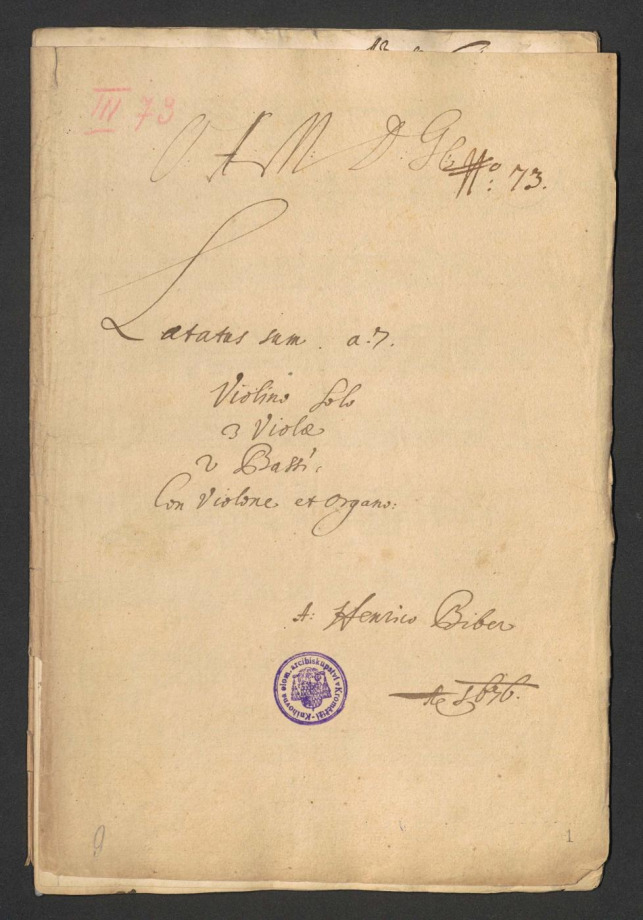 III 73
O. A. M. D. Gl:
No: 73.
Lætatus sum. a. 7.
Violino solo
3 Violæ
2 Bassi.
Con Violone et Organo:
A: Henrico Biber
1676.
Knihovna olom. arcibiskupství v Kroměříži
1